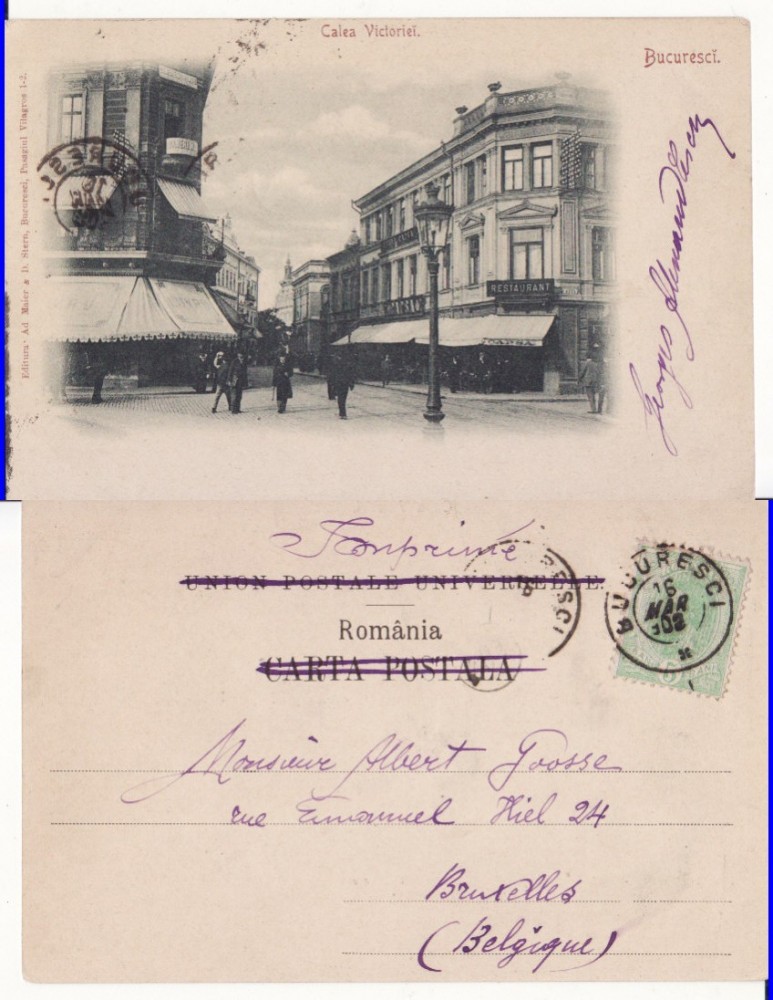 Calea Victorieĭ.
Bucurescĭ.
Editura: Ad. Maier & D. Stern, Bucuresci, Pasagiul Vilagros 1-2.
RESTAURANT
Georges
Imprimé
UNION POSTALE UNIVERSELLE.
România
CARTA POSTALA
BUCURESCI
16
MAR
902
5
Monsieur Albert Goosse
rue Emmanuel Hiel 24
Bruxelles
(Belgique)